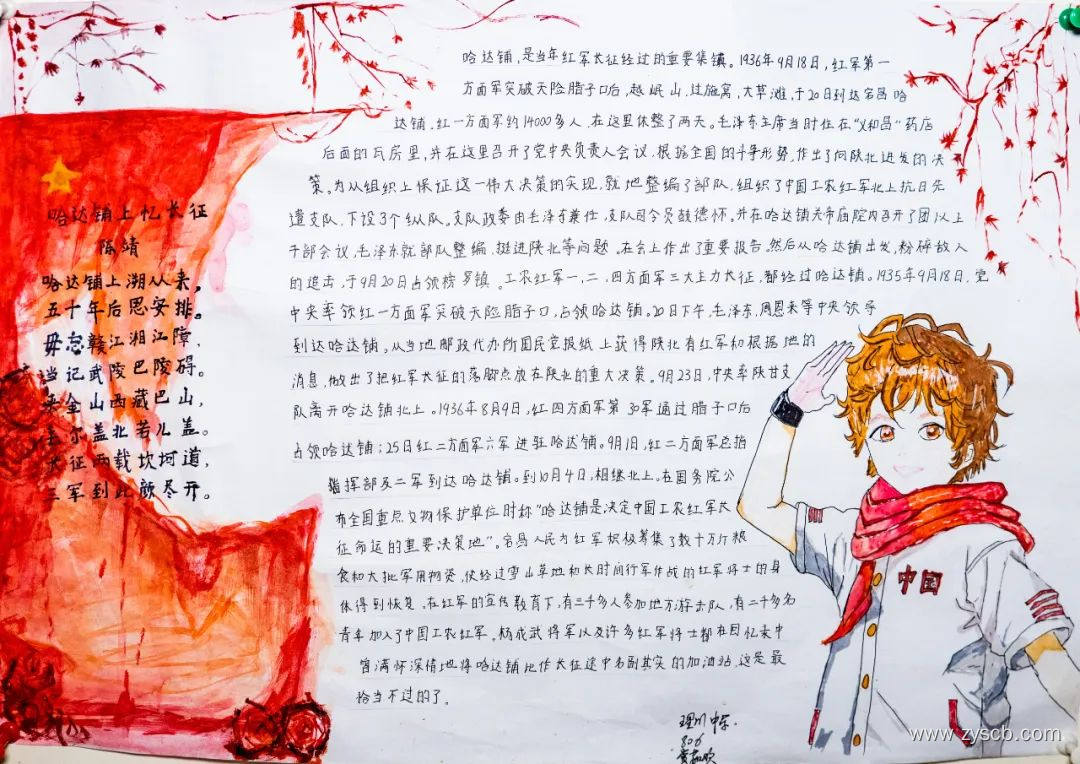 哈达铺上忆长征
陈靖
哈达铺上溯从来，
五十年后思安排。
毋忘赣江湘江障，
当记武陵巴陵碍。
夹金山西藏巴山，
毛尔盖北若儿盖。
长征两载坎坷道，
三军到此颜尽开。
哈达铺，是当年红军长征经过的重要集镇。1936年9月18日，红军第一
方面军突破天险腊子口后，越岷山，过施窝，大草滩，于20日到达宕昌哈
达铺，红一方面军约14000多人，在这里休整了两天。毛泽东主席当时住在“义和昌”药店
后面的瓦房里，并在这里召开了党中央负责人会议，根据全国的斗争形势，作出了向陕北进发的决
策。为从组织上保证这一伟大决策的实现，就地整编了部队，组织了中国工农红军北上抗日先
遣支队，下设3个纵队。支队政委由毛泽东兼任，支队司令员彭德怀。并在哈达铺关帝庙院内召开了团以上
干部会议，毛泽东就部队整编、挺进陕北等问题，在会上作出了重要报告。然后从哈达铺出发，粉碎敌人
的追击，于9月20日占领榜罗镇。工农红军一，二，四方面军三大主力长征，都经过哈达铺。1935年9月18日，党
中央率领红一方面军突破天险腊子口，占领哈达铺。20日下午，毛泽东，周恩来等中央领导
到达哈达铺，从当地邮政代办所国民党报纸上获得陕北有红军和根据地的
消息，做出了把红军长征的落脚点放在陕北的重大决策。9月23日，中央率陕甘支
队离开哈达铺北上。1936年8月9日，红四方面军第30军通过腊子口后
占领哈达铺；25日红二方面军六军进驻哈达铺。9月1日，红二方面军总指
指挥部及二军到达哈达铺。到10月4日，相继北上。在国务院公
布全国重点文物保护单位时称“哈达铺是决定中国工农红军长
征命运的重要决策地”。宕昌人民为红军积极筹集了数十万斤粮
食和大批军用物资，使经过雪山草地和长时间行军作战的红军将士的身
体得到恢复。在红军的宣传教育下，有三千多人参加地方游击队，有二千多名
青年加入了中国工农红军。杨成武将军以及许多红军将士都在回忆录中
曾满怀深情地将哈达铺比作长征途中名副其实的加油站，这是最
恰当不过的了。
中国
理川中学.
806
www.zyscb.com